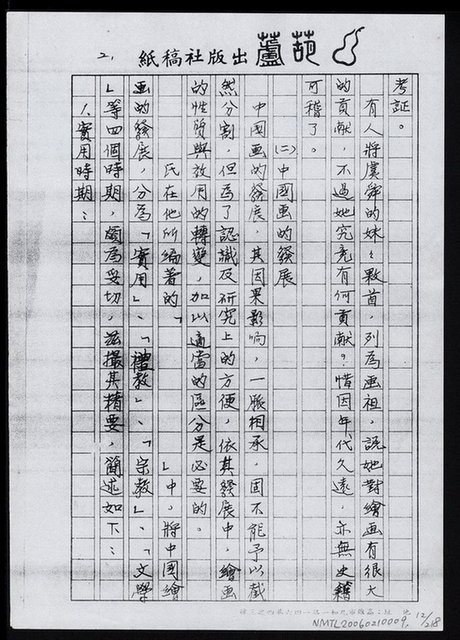 2.
紙稿社版出蘆葫
考証。
有人將虞舜的妹々敤首，列為画祖，說她對繪画有很大
的貢献，不過她究竟有何貢献？惜因年代久遠，亦無史籍
可稽了。
(二)中國画的發展
中國画的發展，其因果影响，一脈相承，固不能予以截
然分割，但為了認識及研究上的方便，依其發展中，繪画
的性質與效用的轉變，加以適當的區分是必要的。
氏在他所編著的「　　　」中，將中國繪
画的發展，分為「實用」、「禮教」、「宗教」、「文學
」等四個時期，頗為妥切，茲撮其精要，簡述如下：
1.實用時期：
NMTL20060210009,
12/218